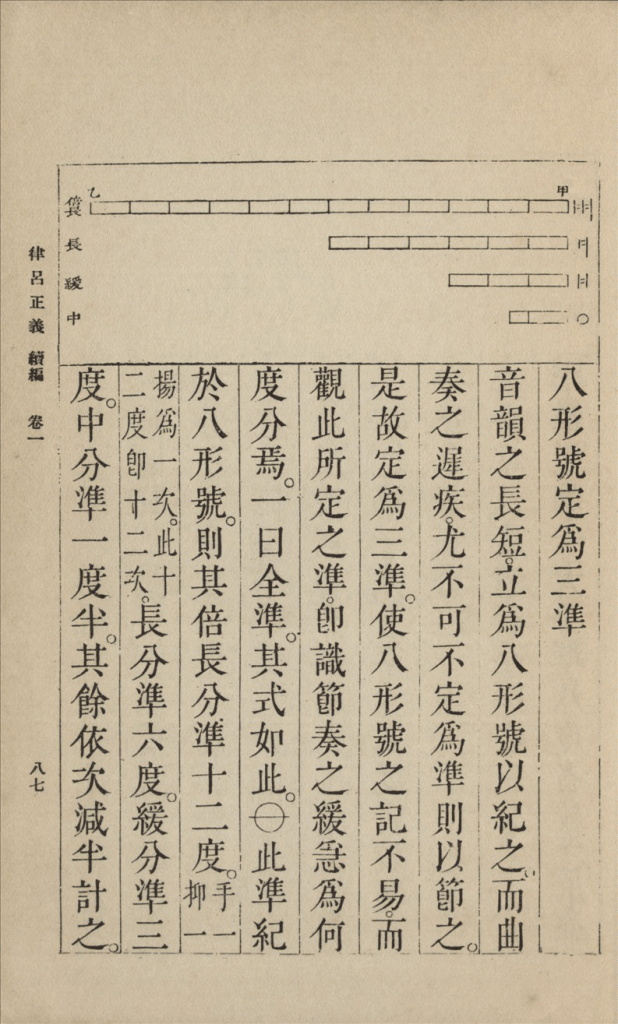 甲
乙
倍長
長
緩
中
八形號定爲三準
音韻之長短。立爲八形號以紀之。而曲
奏之遲疾。尤不可不定爲準則以節之。
是故定爲三準。使八形號之記不易。而
觀此所定之準。卽識節奏之緩急爲何
度分焉。一曰全準。其式如此。此準紀
於八形號。則其倍長分準十二度。手一
抑一
揚爲一次。此十
二度卽十二次。長分準六度。緩分準三
度。中分準一度半。其餘依次減半計之。
律呂正義 續編 卷一
八七